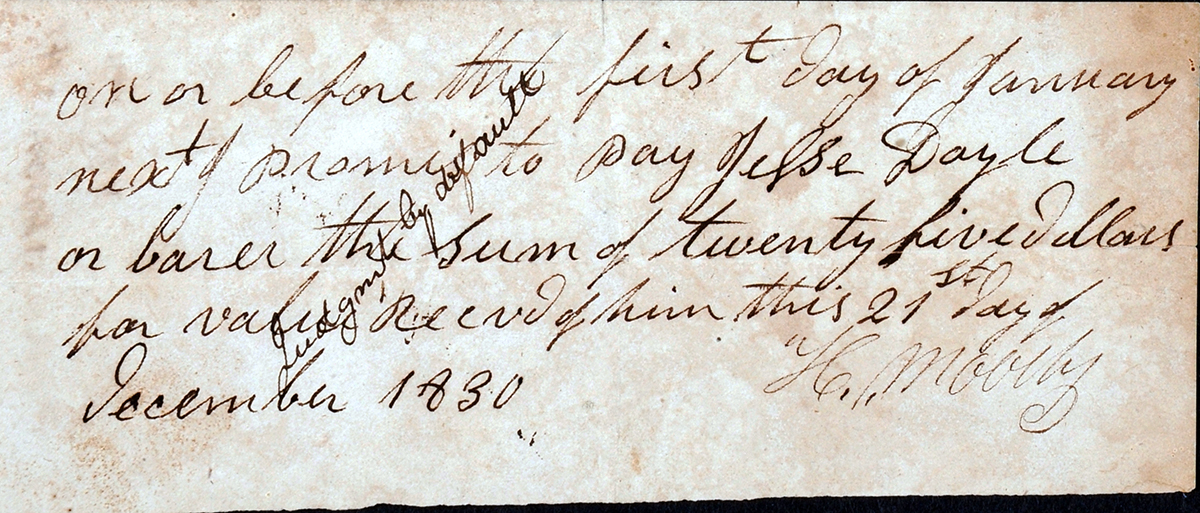 on or before the first day of January
next I promis to pay Jesse Dayle
or barer the sum of twenty five dollars
for value Recevd of him this 21st day of
December 1830
H.
Judgmt by default